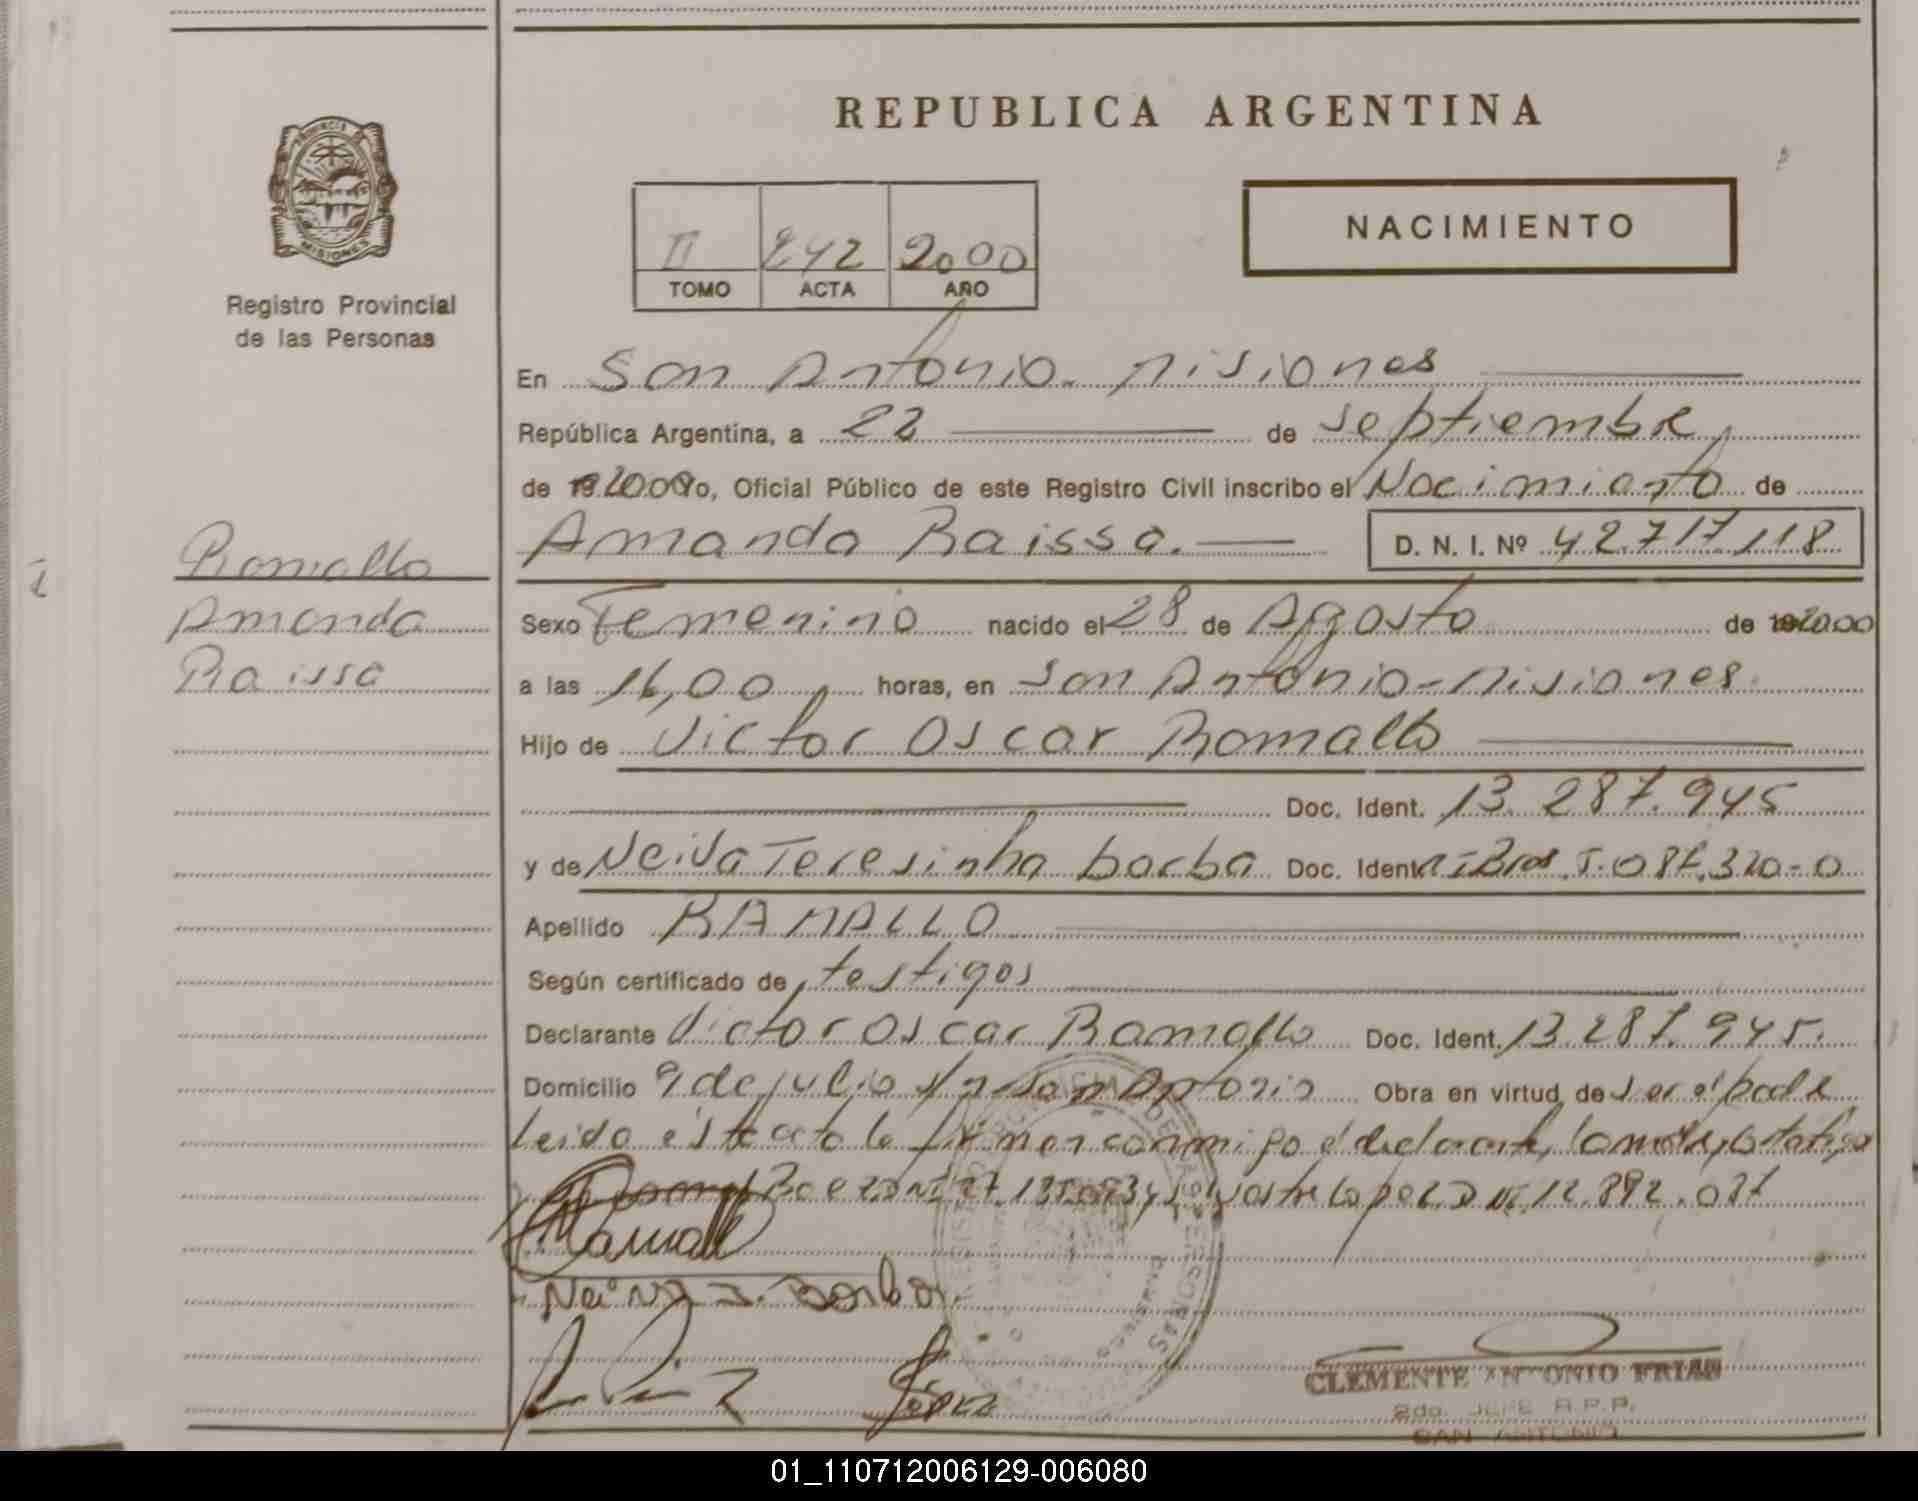 REPUBLICA ARGENTINA
PROVINCIA DE
MISIONES
Registro Provincial
de las Personas
II 242 2000
TOMO ACTA AÑO
NACIMIENTO
En San Antonio - Misiones
República Argentina, a 22 de septiembre
de 2000 Yo, Oficial Público de este Registro Civil inscribo el Nacimiento de
Amanda Raissa. D. N. I. Nº 42.717.118
Ramallo
Amanda
Raissa
Sexo Femenino nacido el 28 de Agosto de 2000
a las 16,00 horas, en San Antonio - Misiones
Hijo de Victor Oscar Ramallo
Doc. Ident. 13.287.945
y de Neiva Teresinha borba Doc. Ident.
Apellido RAMALLO
Según certificado de testigos
Declarante Victor Oscar Ramallo Doc. Ident. 13.287.945.
Domicilio 9 de julio s/n San Antonio Obra en virtud de ser el padre
Leida ésta acta la firman conmigo el declarante, la madre y los testigos
Lopez D NI. 12.892.087
Neiva T. Borba
López
CLEMENTE ANTONIO FRIAS
2do. JEFE R.P.P.
SAN ANTONIO
01_110712006129-006080